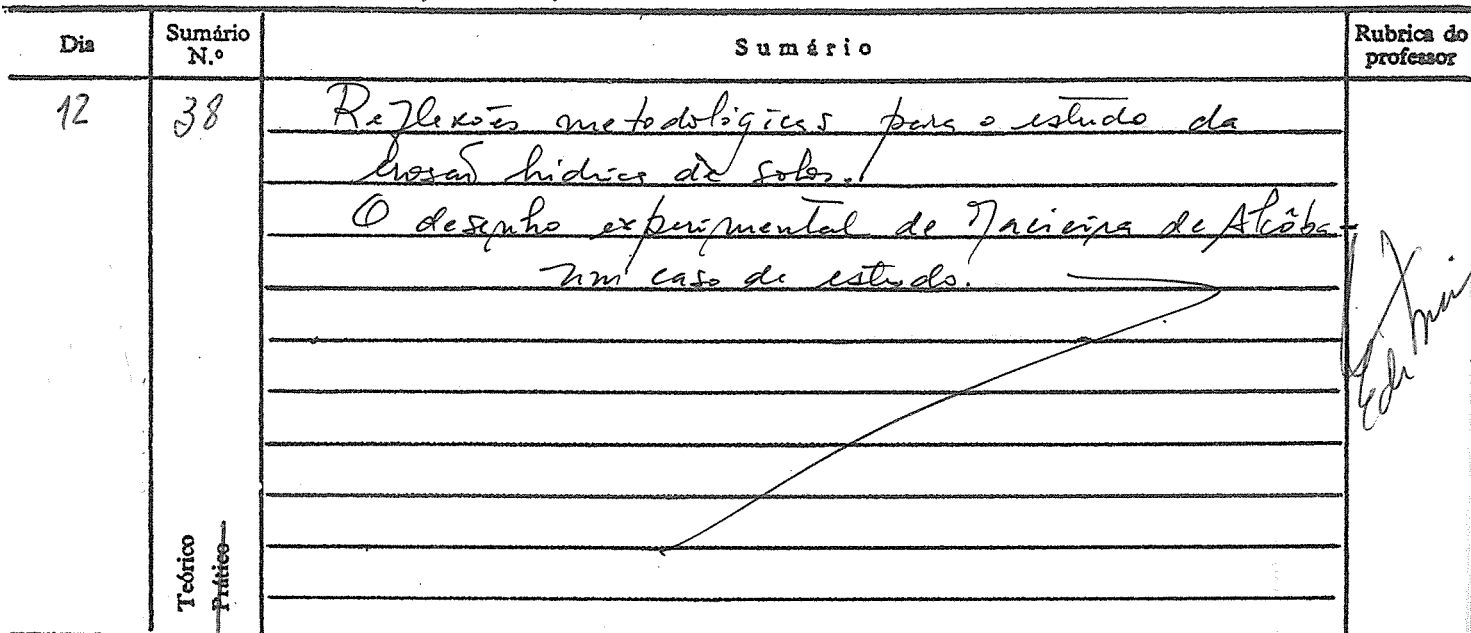 Dia Sumário N.º Sumário Rubrica do professor
12 38 Reflexões metodológicas para o estudo da
erosão hídrica de solos.
O desenho experimental de Macieira de Alcôba -
um caso de estudo.
Teórico
Prático